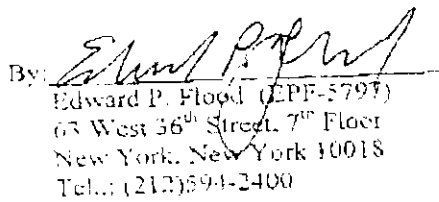 By:
Edward P. Flood (EPF-5797)
63 West 36th Street, 7th Floor
New York, New York 10018
Tel.: (212)594-2400